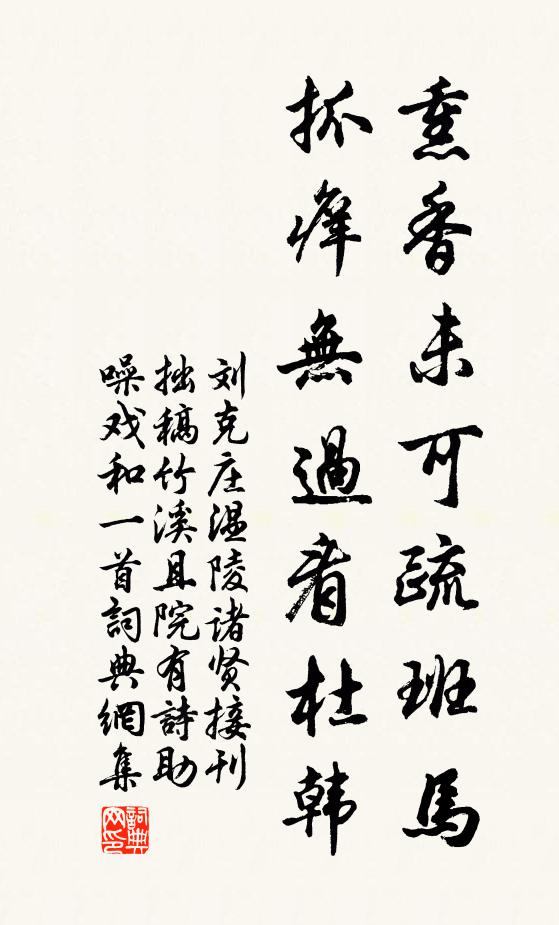 熏香未可疏班馬
抓癢無過看杜韩
刘克庄温陵诸贤接刊
拙稿竹溪且院有詩助
噪戏和一首詞典網集
詞典网印